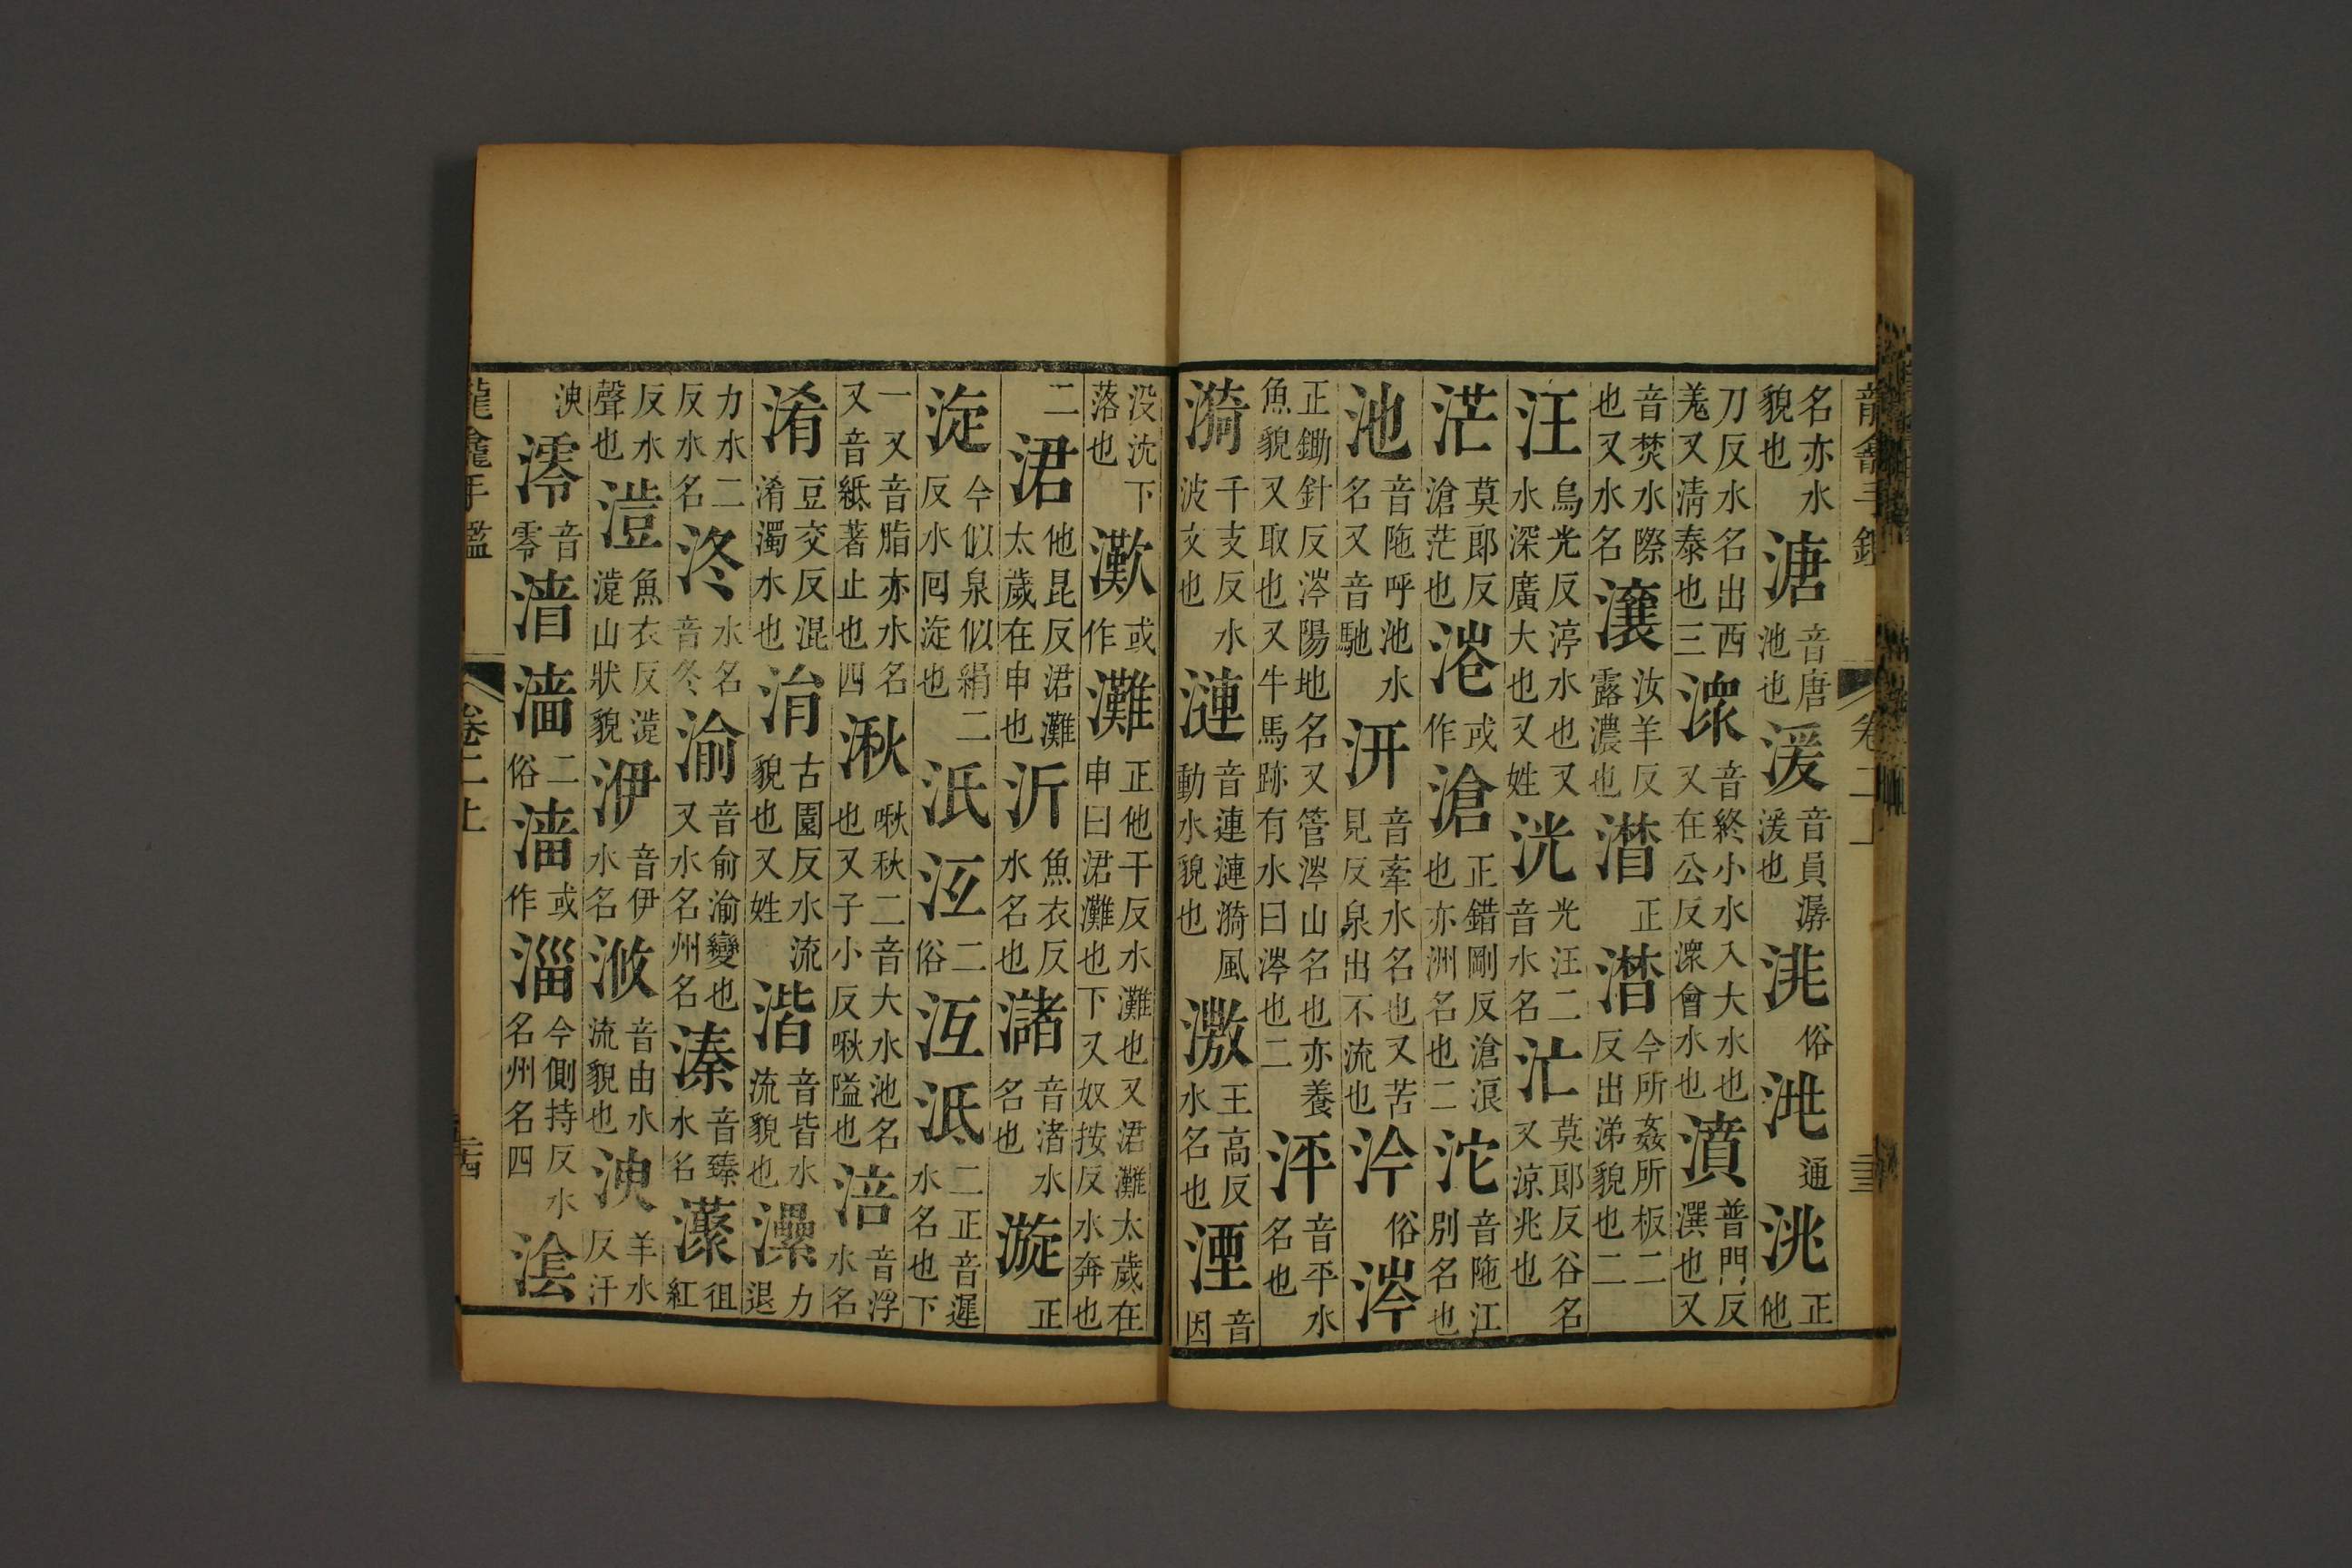 名亦水貌也溏音唐池也湲音員潺湲也㳣俗𣳫通洮正他
刀反水名出西羗又清泰也三潨音終小水入大水也又在公反潨會水也濆普門反潠也又
音焚水際也又水名瀼汝羊反露濃也潸正澘今所姦所板二反出涕貌也二
汪烏光反渟水也又水深廣大也又姓洸光汪二音水名汒莫郎反谷名又涼兆也
茫莫郎反滄茫也㴏或作滄正錯剛反滄浪也亦洲名也二沱音陁江別名也
池音陁呼池水名又音馳汧音牽水名也又苦見反泉出不流也汵俗涔
正鋤針反涔陽地名又管涔山名也亦養魚貌又取也又牛馬跡有水曰涔也二泙音平水名也
漪千支反水波文也漣音連漣漪風動水貌也滶王高反水名也湮音因
没沈下落也灘或作灘正他干反水灘也又涒灘太歲在申曰涒灘也下又奴按反水奔也
二涒他昆反涒灘太歲在申也沂魚衣反水名也瀦音渚水名也漩正
淀今似泉似絹反水囘淀也二泜沍俗二沍泜二正音遲水名也下
一又音脂亦水名又音紙著止也四湫啾秋二音大水池名也又子小反啾隘也涪音浮水名
淆豆交反混淆濁水也㳙古園反水流貌也又姓湝音皆水流貌也灅力退
力水二反水名泈水名音冬渝音俞渝變也又水名州名溱音臻水名藻徂紅
反水聲也溰魚衣反溰溰山狀貌洢音伊水名浟音由水流貌也洟羊水反汗
洟澪音零湇𣹢二俗𣹢或作淄今側持反水名州名四渰
龍龕手鑑
卷二上